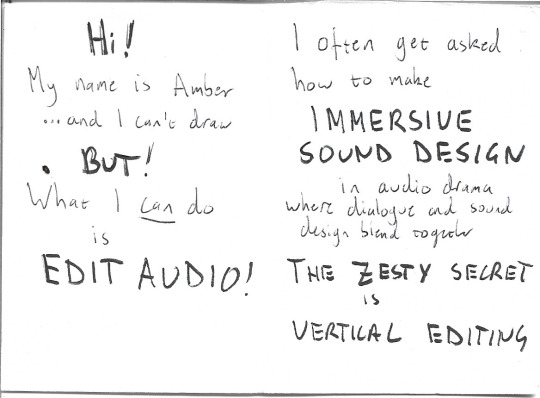 Hi!
My name is Amber
...and I can't draw
. BUT!
What I can do
is
EDIT AUDIO!
I often get asked
how to make
IMMERSIVE
SOUND DESIGN
in audio drama
where dialogue and sound
design blend together
THE ZESTY SECRET
is
VERTICAL EDITING